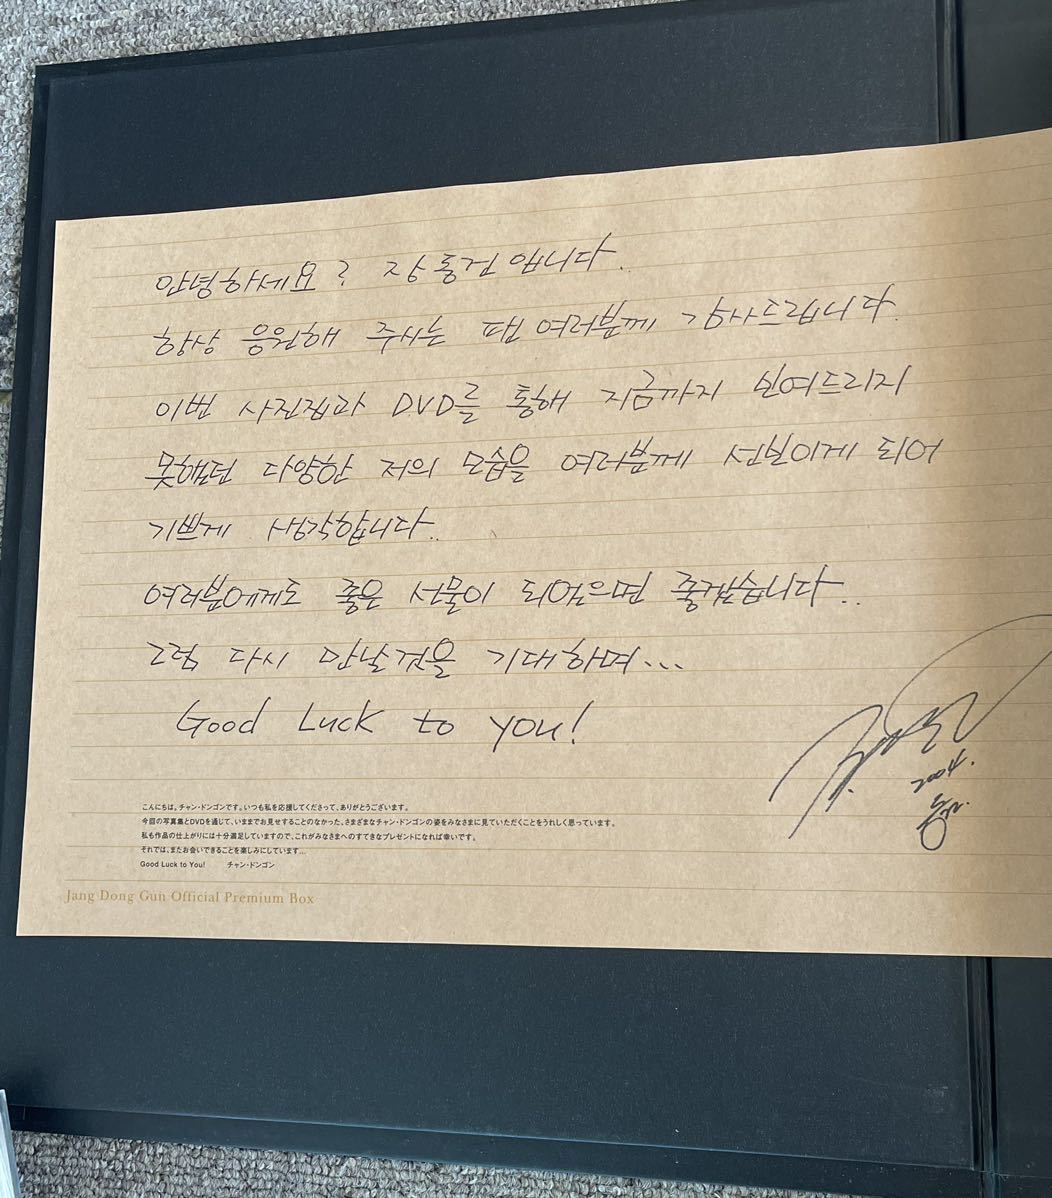 안녕하세요? 장동건 입니다.
항상 응원해 주시는 팬 여러분께 감사드립니다.
이번 사진집과 DVD를 통해 지금까지 보여드리지
못했던 다양한 저의 모습을 여러분께 선보이게 되어
기쁘게 생각합니다..
여러분에게도 좋은 선물이 되었으면 좋겠습니다..
그럼 다시 만날것을 기대하며...
Good Luck to you!
2004.
こんにちは。チャン・ドンゴンです。いつも私を応援してくださって、ありがとうございます。
今回の写真集とDVDを通じて、いままでお見せすることのなかった、さまざまなチャン・ドンゴンの姿をみなさまに見ていただくことをうれしく思っています。
私も作品の仕上がりには十分満足していますので、これがみなさまへのすてきなプレゼントになれば幸いです。
それでは、またお会いできることを楽しみにしています…
Good Luck to You! チャン・ドンゴン
Jang Dong Gun Official Premium Box